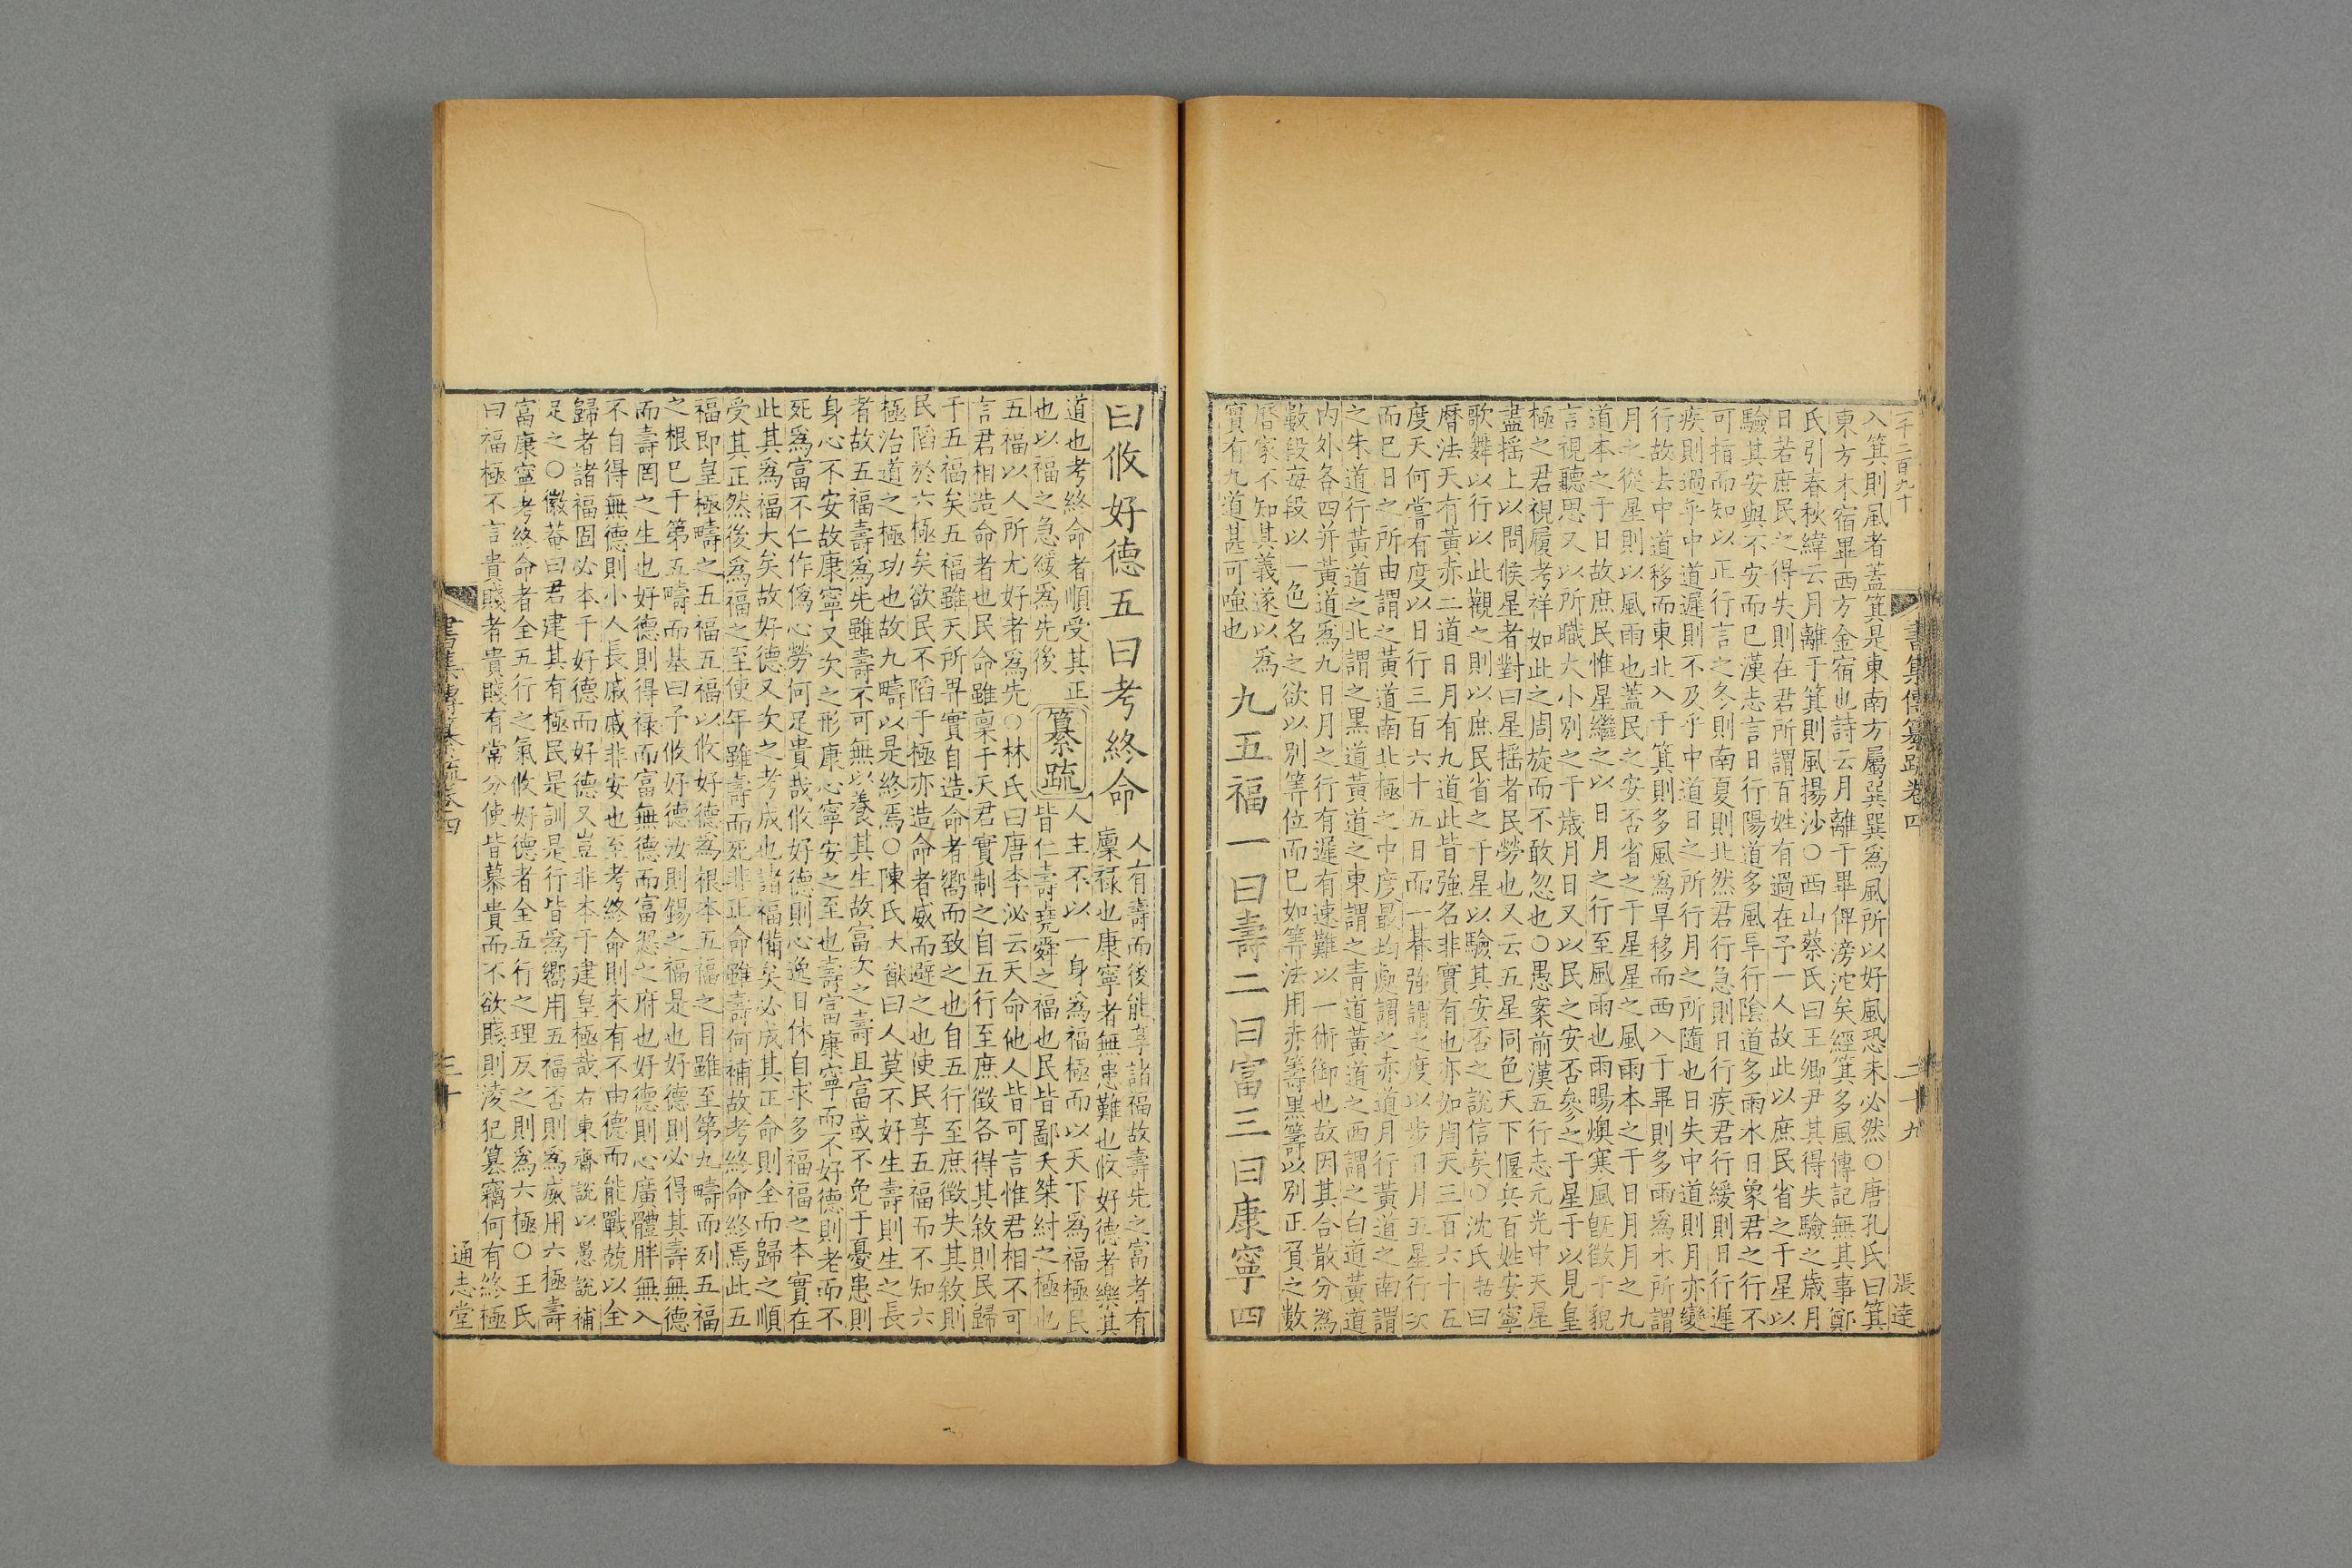 一千二百九十
書集傳纂疏卷四
二十九
張逵
入箕則風者蓋箕是東南方屬巽巽爲風所以好風恐未必然○唐孔氏曰箕
東方木宿畢西方金宿也詩云月離于畢俾滂沱矣經箕多風傳記無其事鄭
氏引春秋緯云月離于箕則風揚沙○西山蔡氏曰王卿尹其得失驗之歲月
日若庶民之得失則在君所謂百姓有過在予一人故此以庶民省之于星以
驗其安與不安而已漢志言日行陽道多風旱行陰道多雨水日象君之行不
可指而知以正行言之冬則南夏則北然君行急則日行疾君行緩則日行遲
疾則過乎中道遲則不及乎中道日之所行月之所隨也日失中道則月亦變
行故去中道移而東北入于箕則多風爲旱移而西入于畢則多雨爲水所謂
月之從星則以風雨也蓋民之安否省之于星星之風雨本之于日月月之九
道本之于日故庶民惟星繼之以日月之行至風雨也雨暘燠寒風旣徵于貌
言視聽思又以所職大小別之于歲月日又以民之安否參之于星于以見皇
極之君視履考祥如此之周旋而不敢忽也○愚案前漢五行志元光中天星
盡搖上以問候星者對曰星搖者民勞也又云五星同色天下偃兵百姓安寧
歌舞以行以此觀之則以庶民省之于星以驗其安否之說信矣○沈氏括曰
曆法天有黃赤二道日月有九道此皆強名非實有也亦如周天三百六十五
度天何嘗有度以日行三百六十五日而一朞強謂之度以步日月五星行次
而已日之所由謂之黃道南北極之中度最均處謂之赤道月行黃道之南謂
之朱道行黃道之北謂之黑道黃道之東謂之靑道黃道之西謂之白道黃道
內外各四并黃道爲九日月之行有遲有速難以一術御也故因其合散分爲
數段每段以一色名之欲以別等位而已如筭法用赤籌黑籌以別正負之數
曆家不知其義遂以爲
實有九道甚可嗤也
九五福一曰壽二曰富三曰康寧四
曰攸好德五曰考終命
人有壽而後能享諸福故壽先之富者有
廩祿也康寧者無患難也攸好德者樂其
道也考終命者順受其正
也以福之急緩爲先後
纂疏
人主不以一身爲福極而以天下爲福極民
皆仁壽堯舜之福也民皆鄙夭桀紂之極也
五福以人所尤好者爲先○林氏曰唐李泌云天命他人皆可言惟君相不可
言君相造命者也民命雖稟于天君實制之自五行至庶徵各得其敘則民歸
于五福矣五福雖天所畀實自造命者嚮而致之也自五行至庶徵失其敘則
民陷於六極矣欲民不陷于極亦造命者威而避之也使民享五福而不知六
極治道之極功也故九疇以是終焉○陳氏大猷曰人莫不好生壽則生之長
者故五福壽爲先雖壽不可無以養其生故富次之壽且富或不免于憂患則
身心不安故康寧又次之形康心寧安之至也壽富康寧而不好德則老而不
死爲富不仁作僞心勞何足貴哉攸好德則心逸日休自求多福福之本實在
此其爲福大矣故好德又次之考成也諸福備矣必成其正命則全而歸之順
受其正然後爲福之至使年雖壽而死非正命雖壽何補故考終命終焉此五
福卽皇極疇之五福五福以攸好德爲根本五福之目雖至第九疇而列五福
之根已于第五疇而基曰予攸好德汝則錫之福是也好德則必得其壽無德
而壽罔之生也好德則得祿而富無德而富怨之府也好德則心廣體胖無入
不自得無德則小人長戚戚非安也至考終命則未有不由德而能戰兢以全
歸者諸福固必本于好德而好德又豈非本于建皇極哉右東齋說以愚說補
足之○徽菴曰君建其有極民是訓是行皆爲嚮用五福否則爲威用六極壽
富康寧考終命者全五行之氣攸好德者全五行之理反之則爲六極○王氏
曰福極不言貴賤者貴賤有常分使皆慕貴而不欲賤則淩犯簒竊何有終極
書集傳纂疏卷四
三十
通志堂